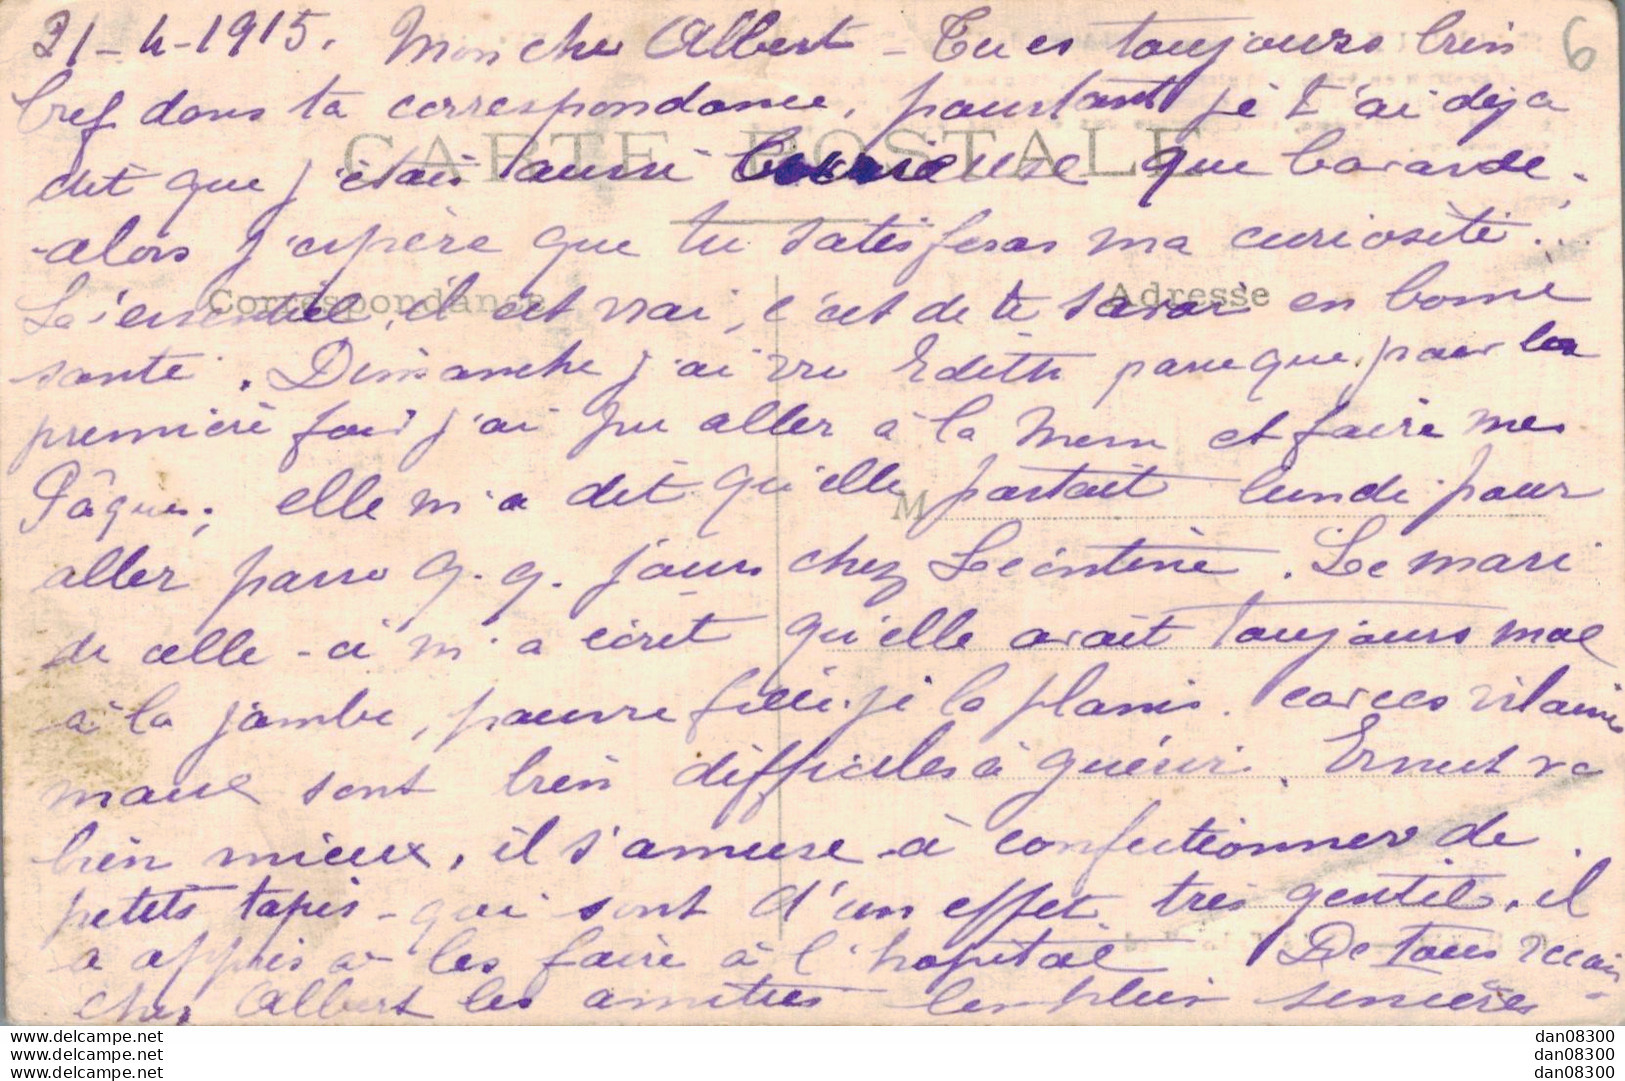 21-4-1915. Mon cher Albert - Tu es toujours bien
6
bref dans ta correspondance, pourtant je t'ai déjà
CARTE POSTALE
dit que j'étais aussi curieuse que bavarde,
alors j'espère que tu satisferas ma curiosité...
Correspondance
Adresse
L'essentiel, il est vrai, c'est de te savoir en bonne
santé. Dimanche j'ai vu Edith parce que pour la
première fois j'ai pu aller à la Messe et faire mes
Pâques; elle m'a dit qu'elle partait lundi pour
M
aller passer q.q. jours chez Léontine. Le mari
de celle-ci m'a écrit qu'elle avait toujours mal
à la jambe, pauvre fille je la plains. car ces vilains
maux sont bien difficiles à guérir. Ernest va
bien mieux, il s'amuse à confectionner de
petits tapis - qui sont d'un effet très gentil, il
a appris à les faire à l'hopital De tous recois
cher Albert les amitiés les plus sincères
www.delcampe.net
www.delcampe.net
www.delcampe.net
dan08300
dan08300
dan08300